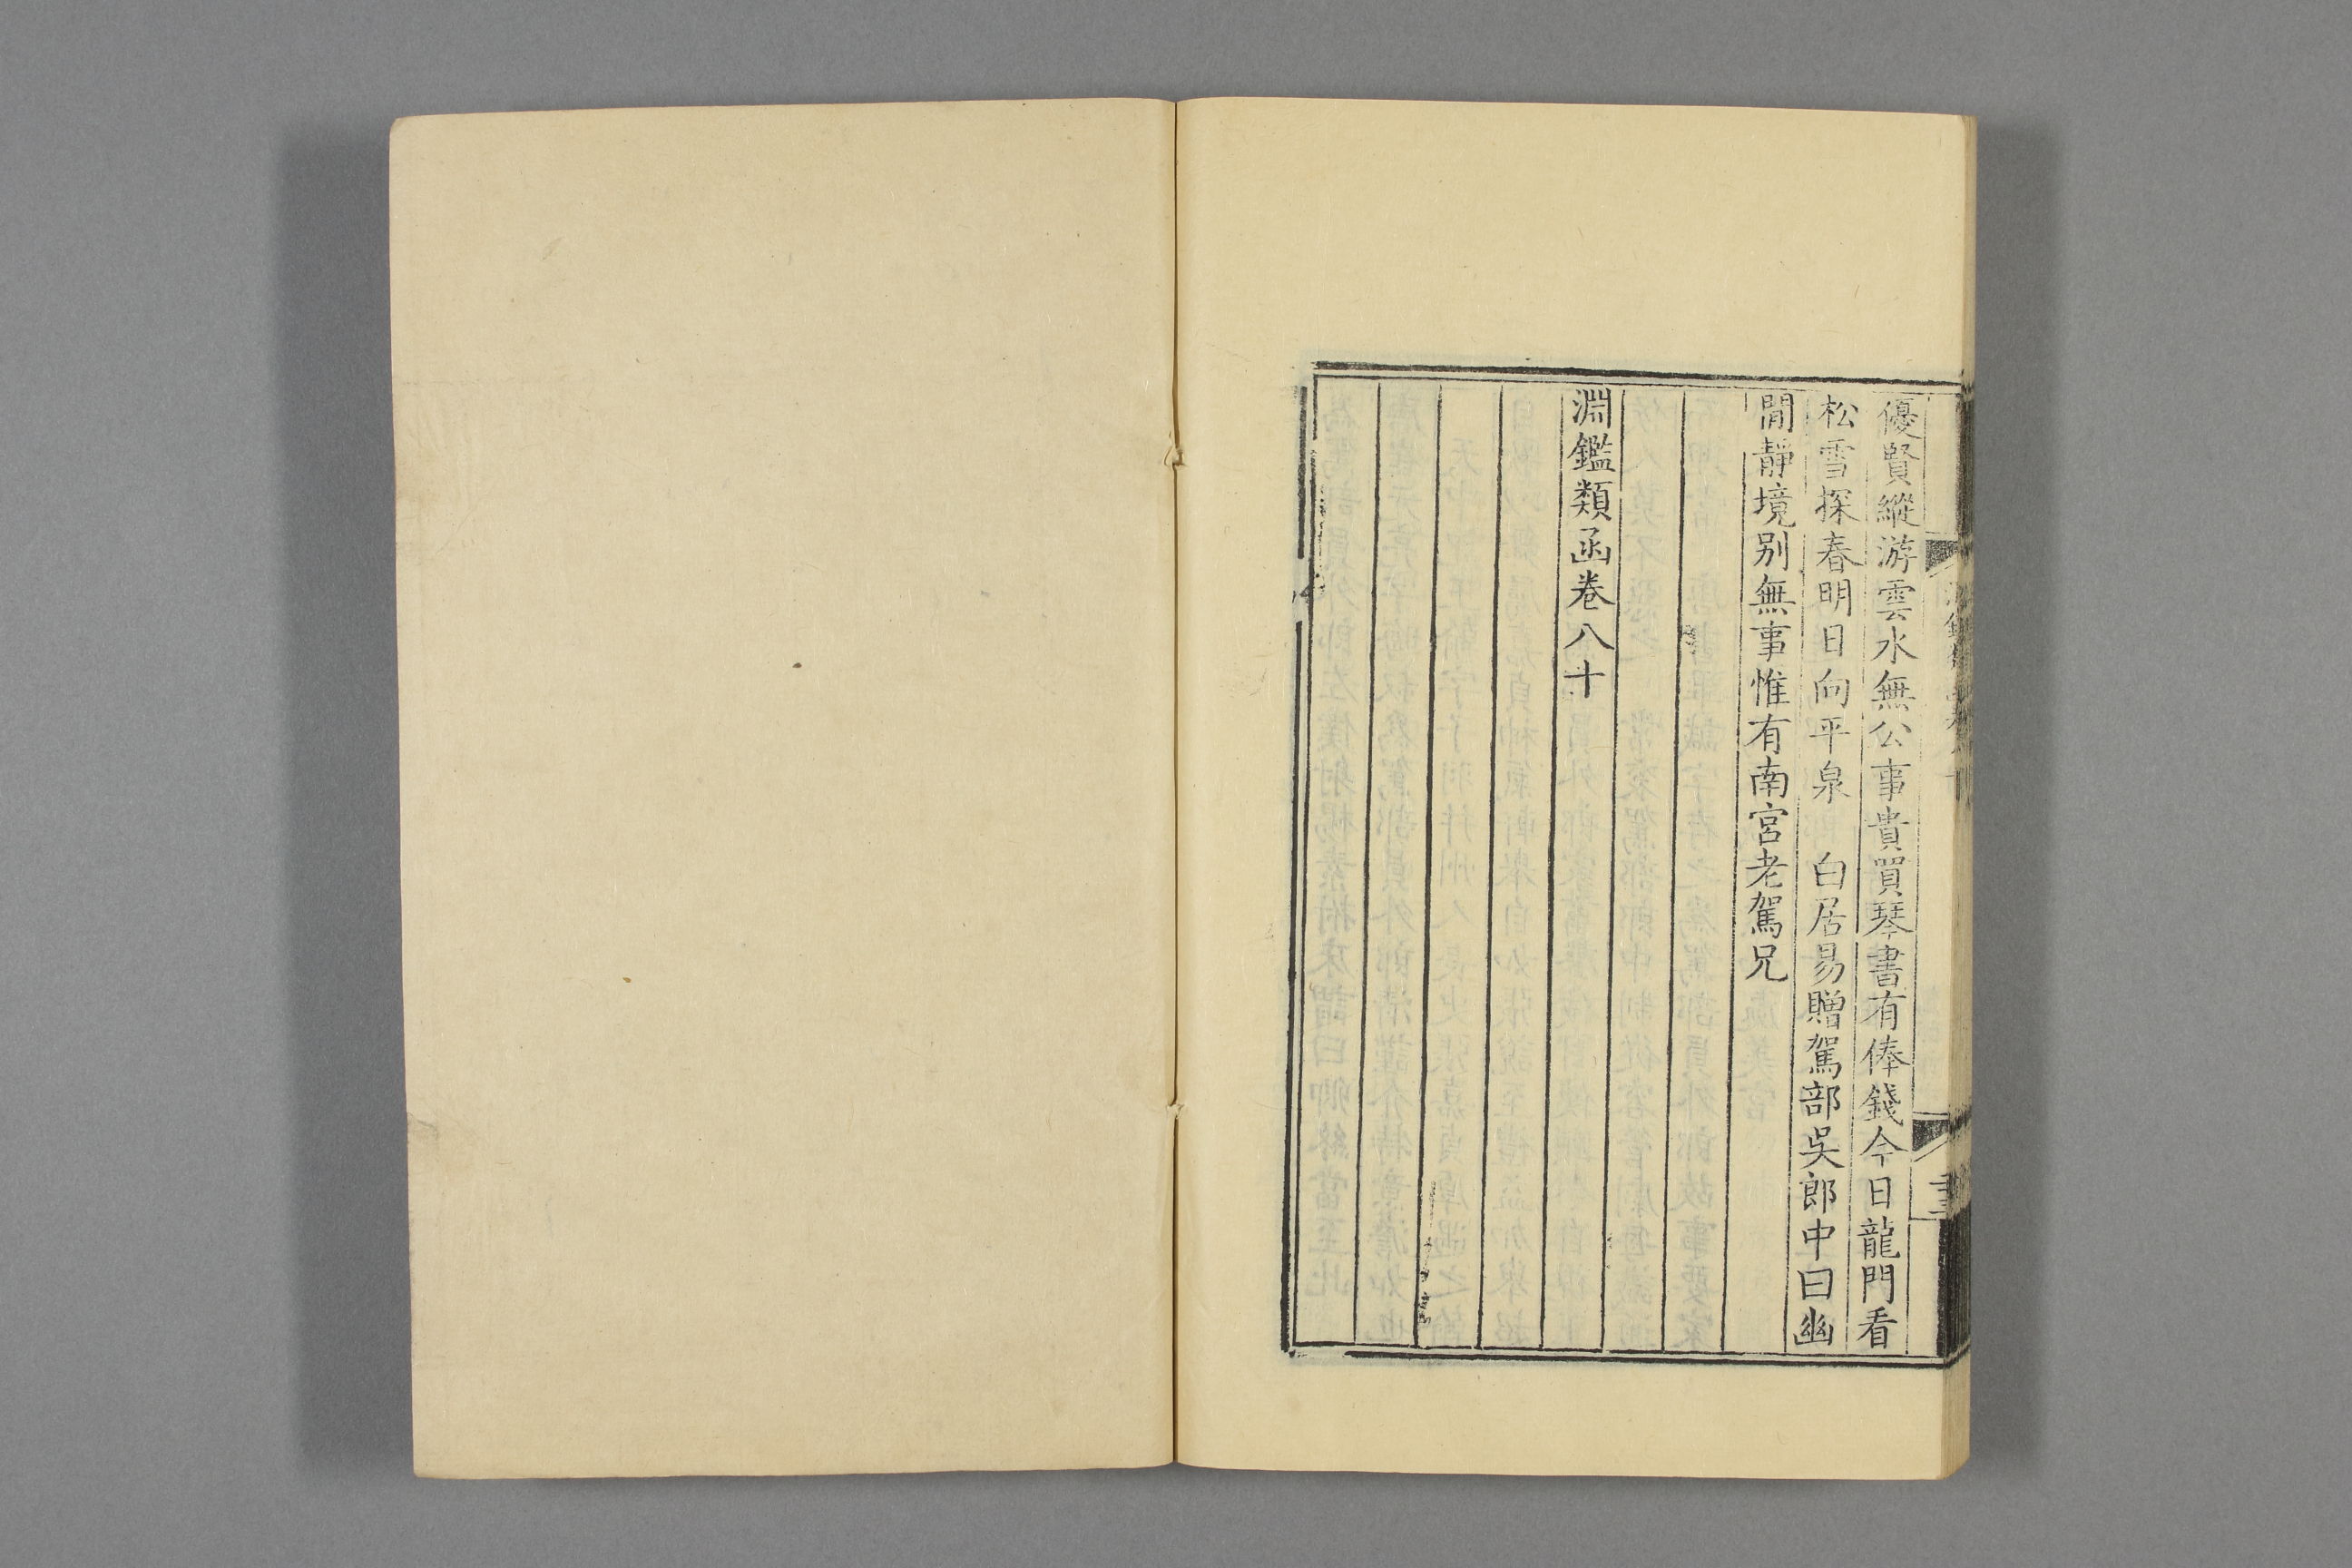 優賢縱游雲水無公事貴買琴書有俸錢今日龍門看
松雪探春明日向平泉　白居易贈駕部吳郎中曰幽
閒靜境別無事惟有南宮老駕兄
淵鑑類函卷八十